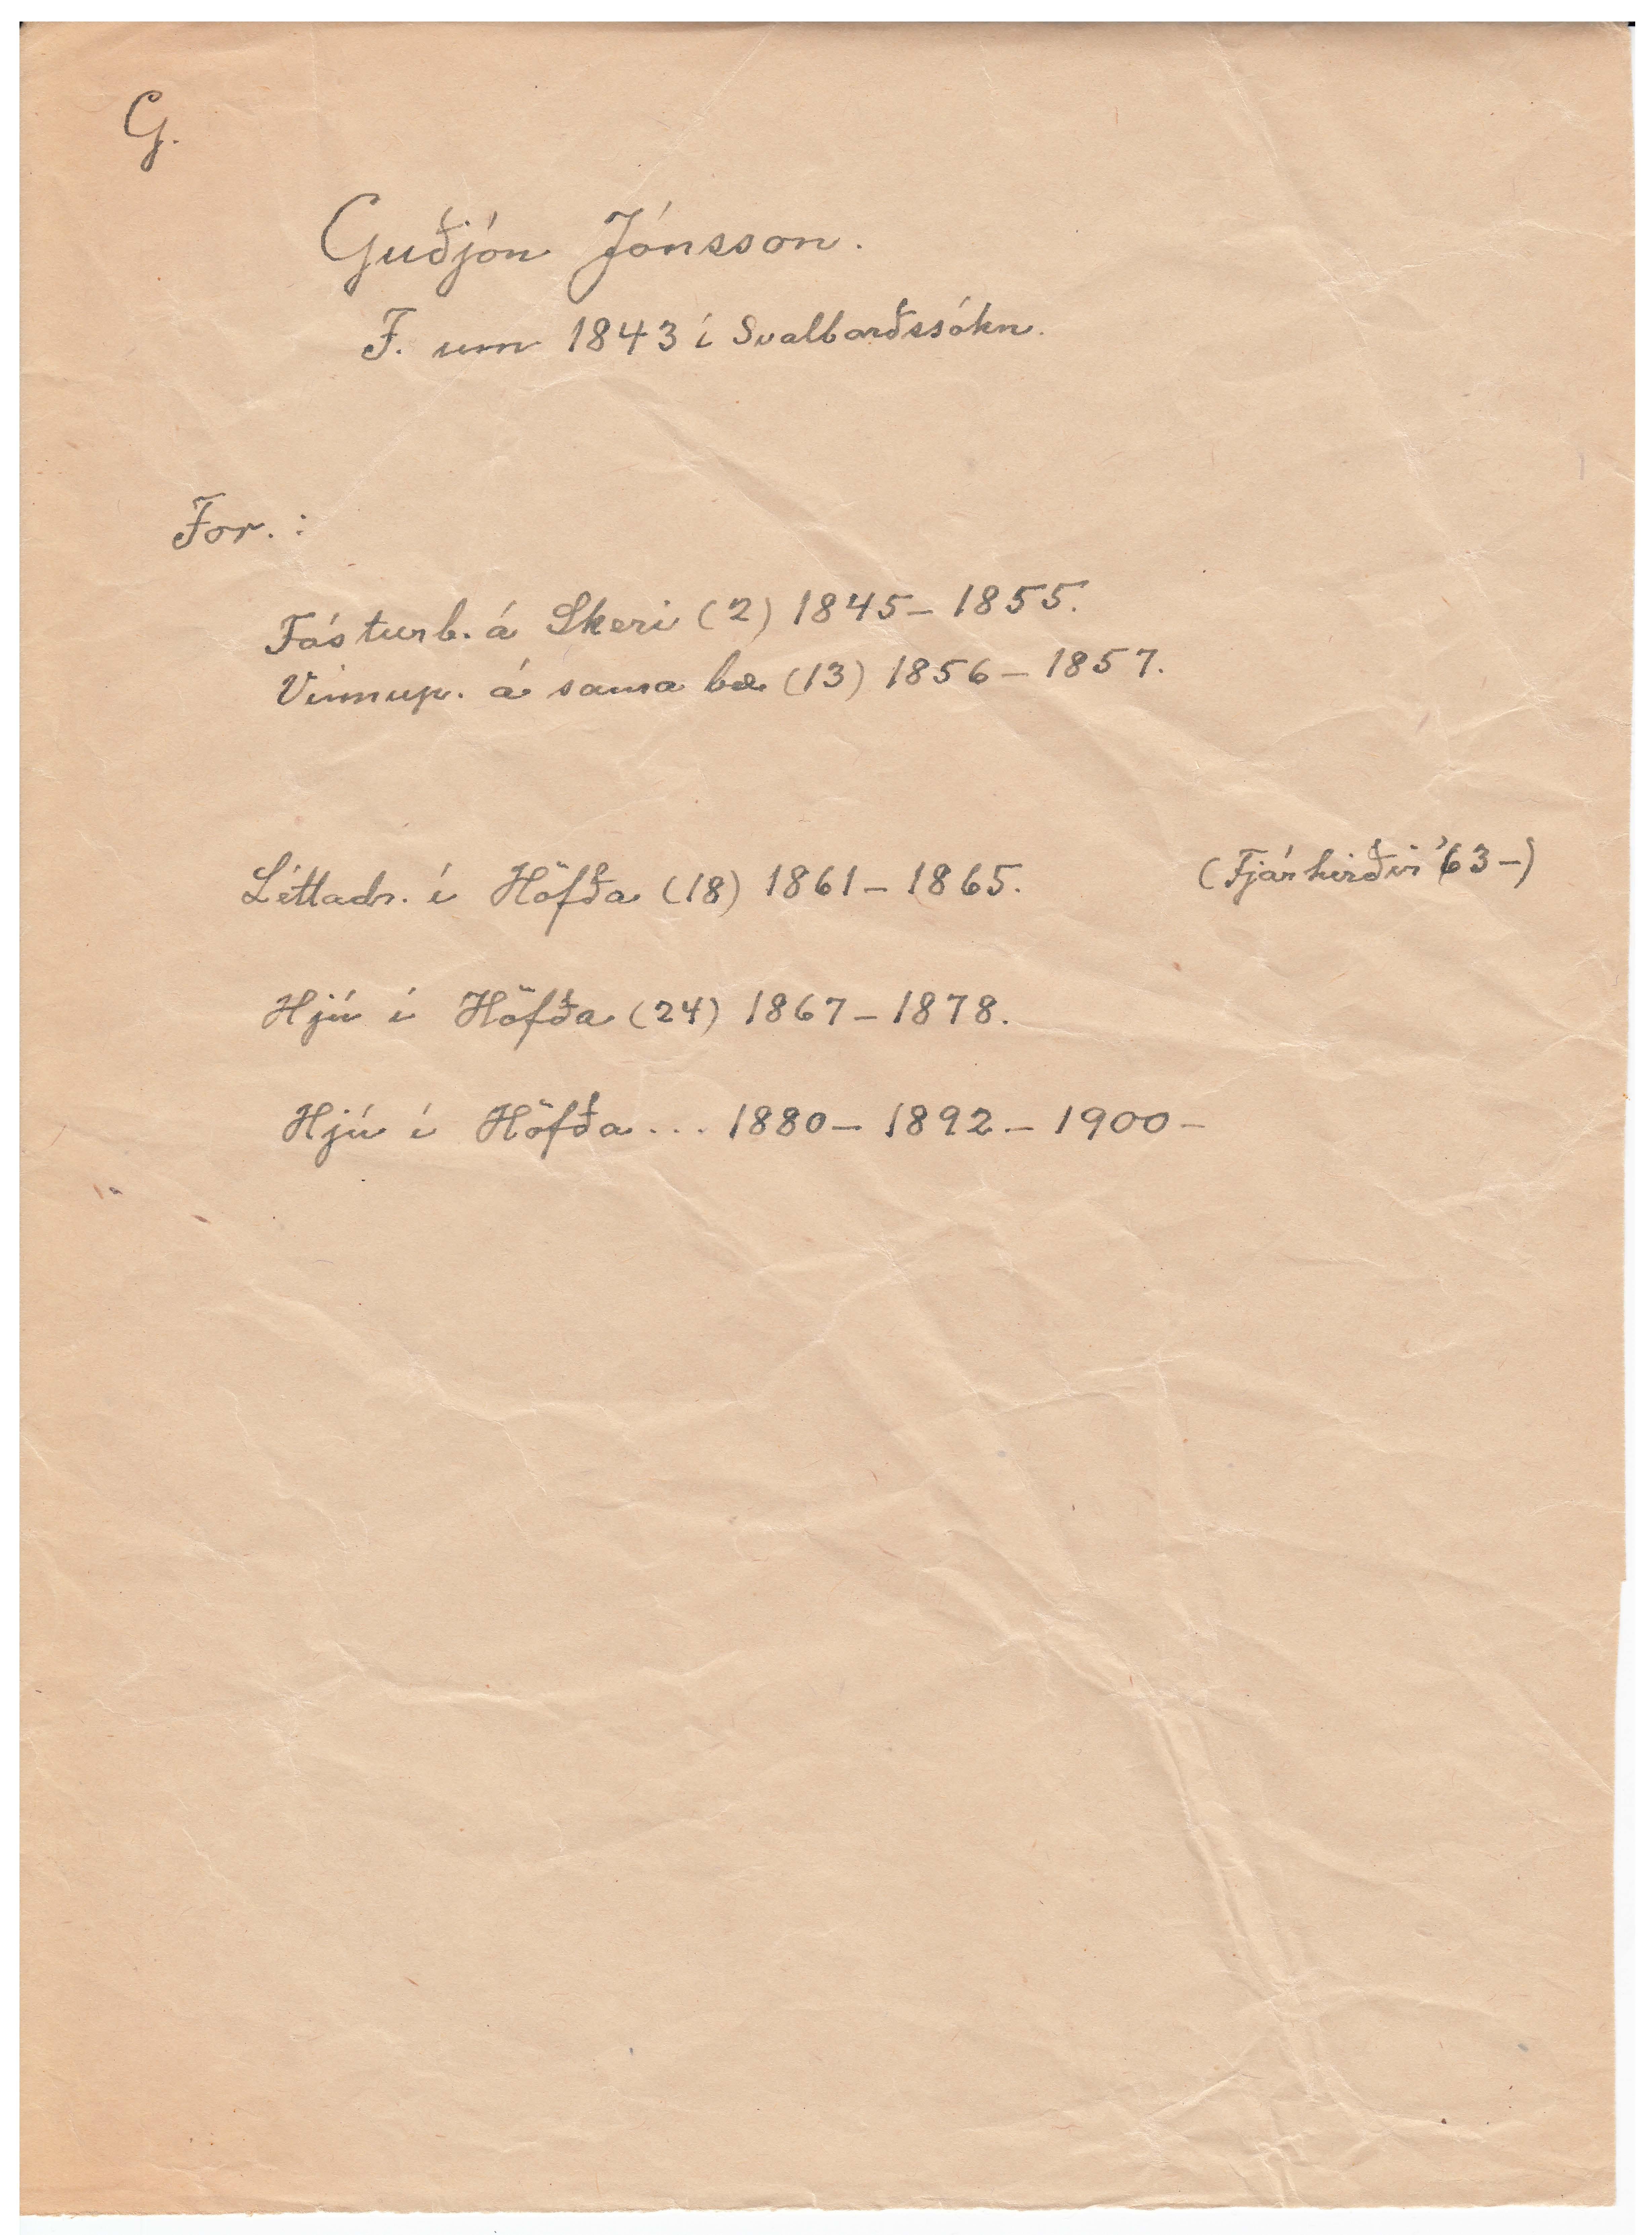 G.
Guðjón Jónsson.
F. um 1843 í Svalbarðssókn.
For. :
Fósturb. á Skeri (2) 1845 – 1855.
Vinnup. á sama bæ (13) 1856 – 1857.
Léttadr. í Höfða (18) 1861 – 1865. (Fjárhirðir '63 –)
Hjú í Höfða (24) 1867 – 1878.
Hjú í Höfða ... 1880 – 1892 – 1900 –